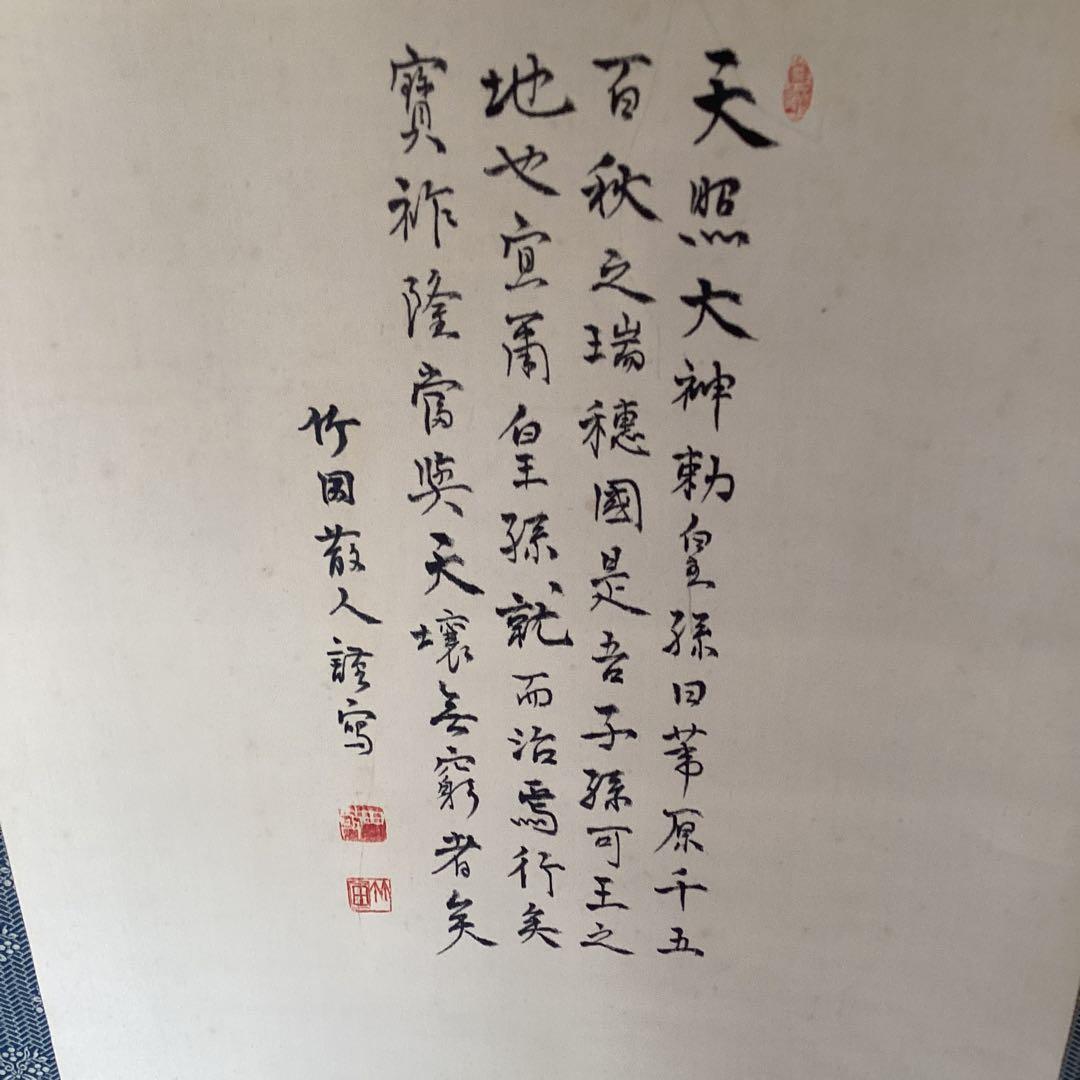 天照大神勅皇孫曰葦原千五
百秋之瑞穂國是吾子孫可王之
地也宜爾皇孫就而治焉行矣
寶祚隆當與天壤無窮者矣
竹園散人謹寫